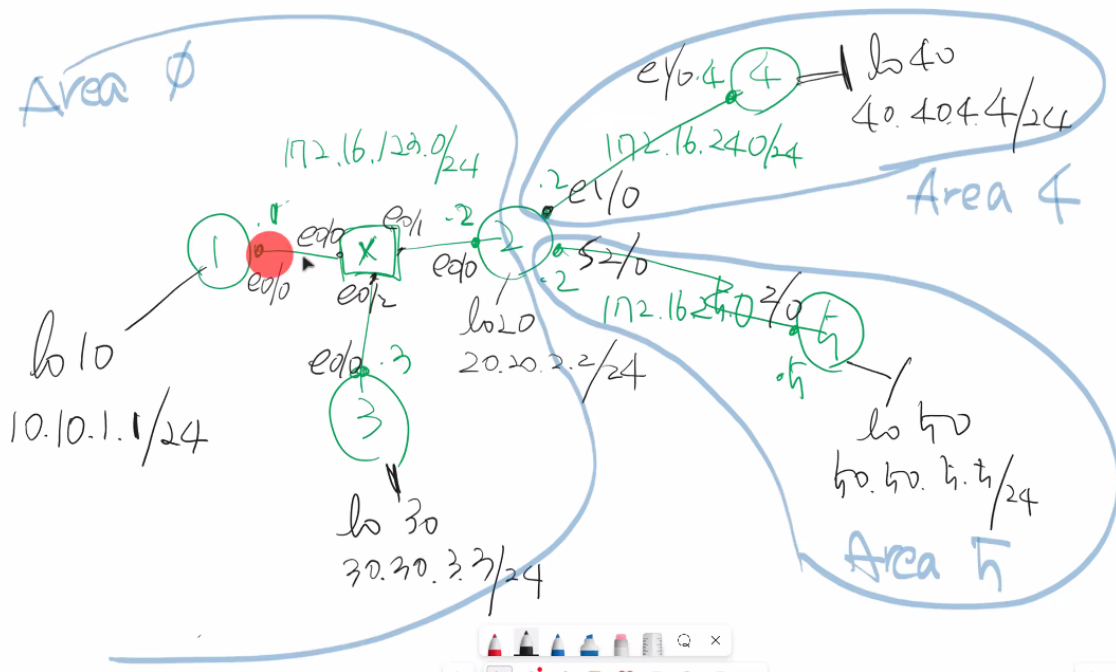 Area 0
172.16.123.0/24
1
.1
e0/0
e0/0
X
e0/1
e0/2
.2
e0/0
2
lo20
20.20.2.2/24
lo10
10.10.1.1/24
e0/0
.3
3
lo 30
30.30.3.3/24
.2
e1/0
172.16.24.0/24
e1/0
.4
4
lo 40
40.40.4.4/24
Area 4
S2/0
.2
172.16.25.0
2/0
5
.5
lo 50
50.50.5.5/24
Area 5